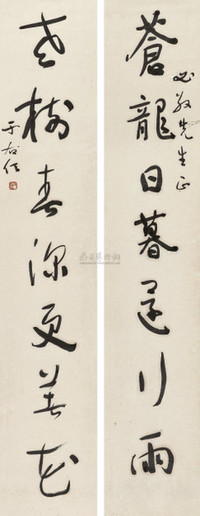 蒼龍日暮還行雨
先生正
老樹春深更著花
于右任